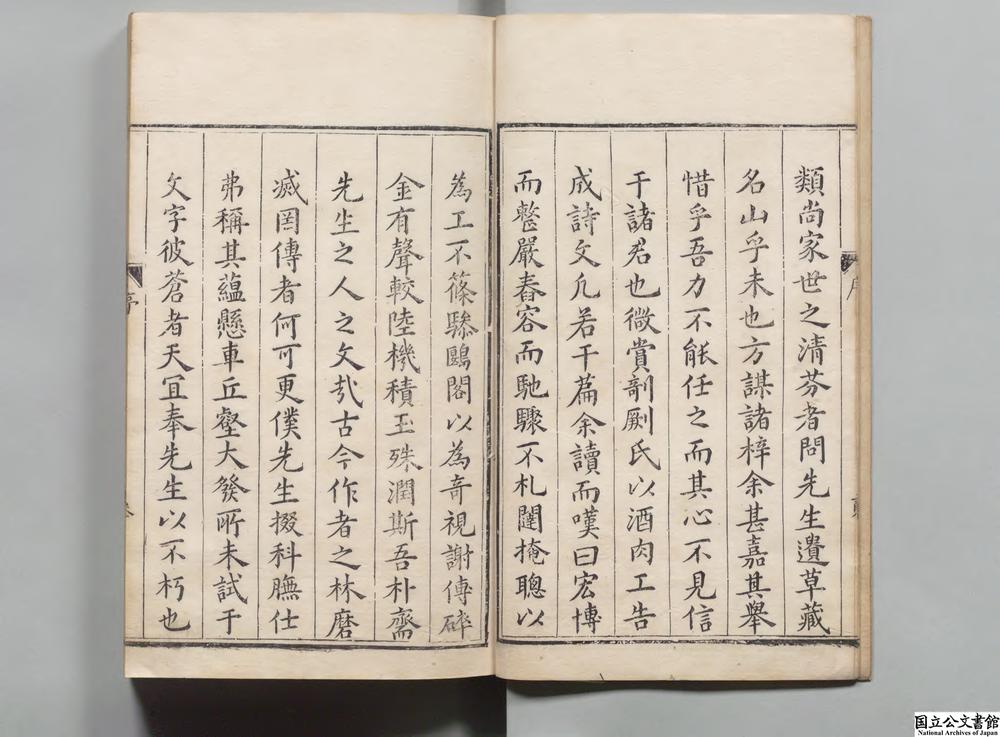 類尚家世之清芬者問先生遺草藏
名山乎未也方謀諸梓余甚嘉其舉
惜乎吾力不能任之而其心不見信
于諸君也微賞剞劂氏以酒肉工告
成詩文凡若干篇余讀而嘆曰宏博
而整嚴舂容而馳驟不札闥掩聰以
為工不篠驂鷗閣以為奇視謝傅碎
金有聲較陸機積玉殊潤斯吾朴齋
先生之人之文哉古今作者之林磨
滅罔傳者何可更僕先生掇科膴仕
弗稱其蘊懸車丘壑大發所未試于
文字彼蒼者天宜奉先生以不朽也
序
国立公文書館
National Archives of Japan